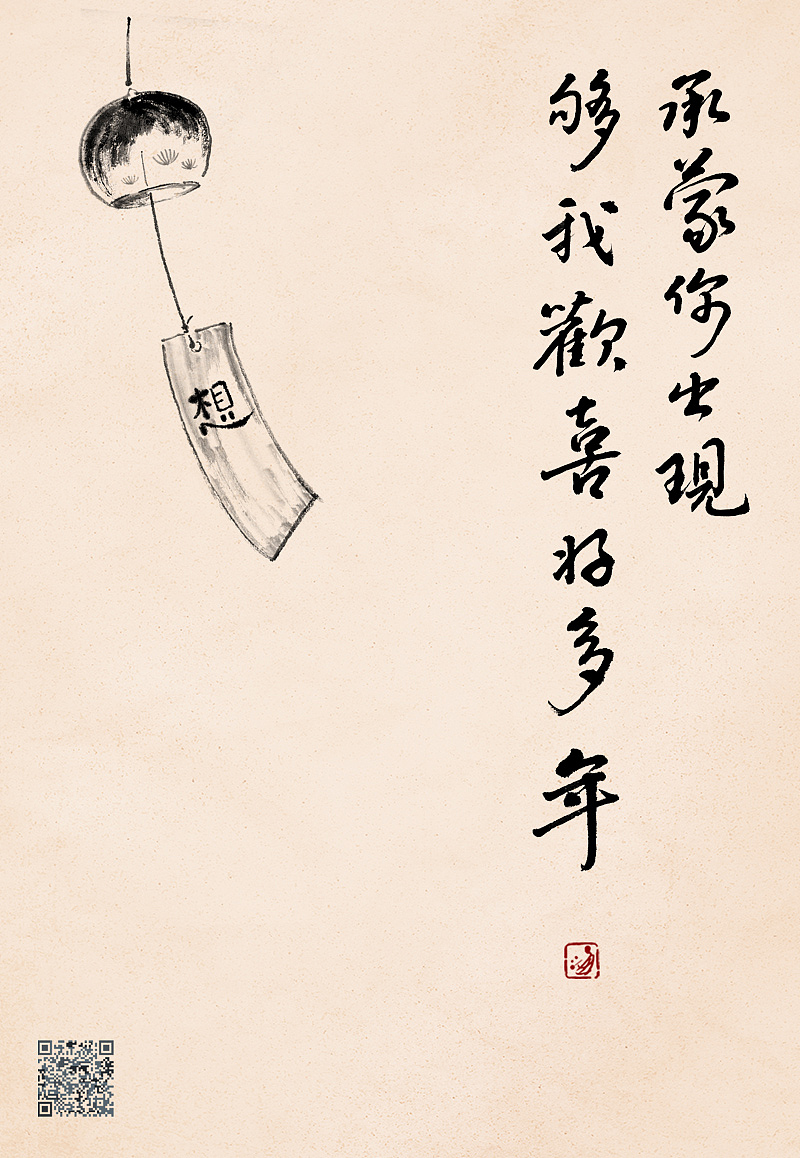 承蒙你出現
够我歡喜好多年
想